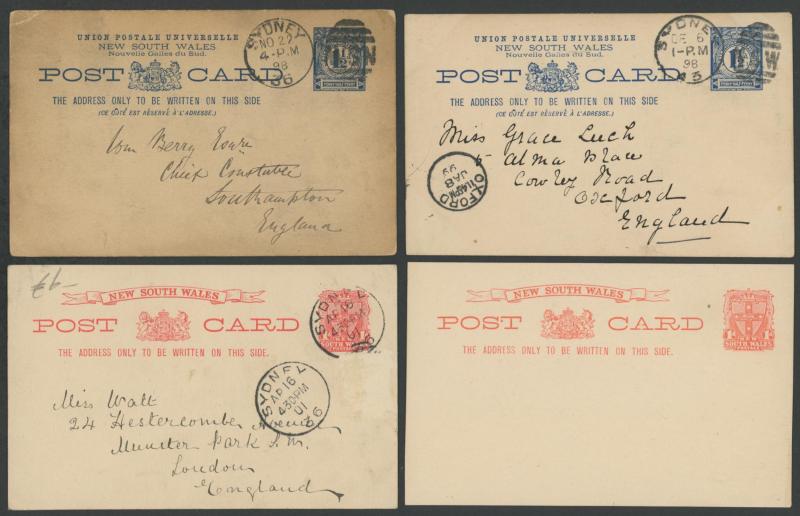 UNION POSTALE UNIVERSELLE
NEW SOUTH WALES
Nouvelle Galles du Sud.
POST CARD
THE ADDRESS ONLY TO BE WRITTEN ON THIS SIDE
(CE CÔTÉ EST RÉSERVÉ À L'ADRESSE.)
SYDNEY
NO 22
4-P.M
98
1½
Wm Berry Esqre
Chief Constable
Southampton
England
UNION POSTALE UNIVERSELLE
NEW SOUTH WALES
Nouvelle Galles du Sud.
POST CARD
THE ADDRESS ONLY TO BE WRITTEN ON THIS SIDE
(CE CÔTÉ EST RÉSERVÉ À L'ADRESSE.)
SYDNEY
DE 6
1-P.M
98
43
1½
Miss Grace Luch
5 Alma Place
Cowley Road
Oxford
England
OXFORD
JA 8
99
NEW SOUTH WALES
POST CARD
THE ADDRESS ONLY TO BE WRITTEN ON THIS SIDE.
SYDNEY
AP 16
4 30 PM
01
SYDNEY
AP 16
4 30 PM
01
36
Miss Watt
24 Hestercombe Avenue
Munster Park S.W.
London
England
NEW SOUTH WALES
POST CARD
THE ADDRESS ONLY TO BE WRITTEN ON THIS SIDE.
NEW
SOUTH WALES
POSTAGE